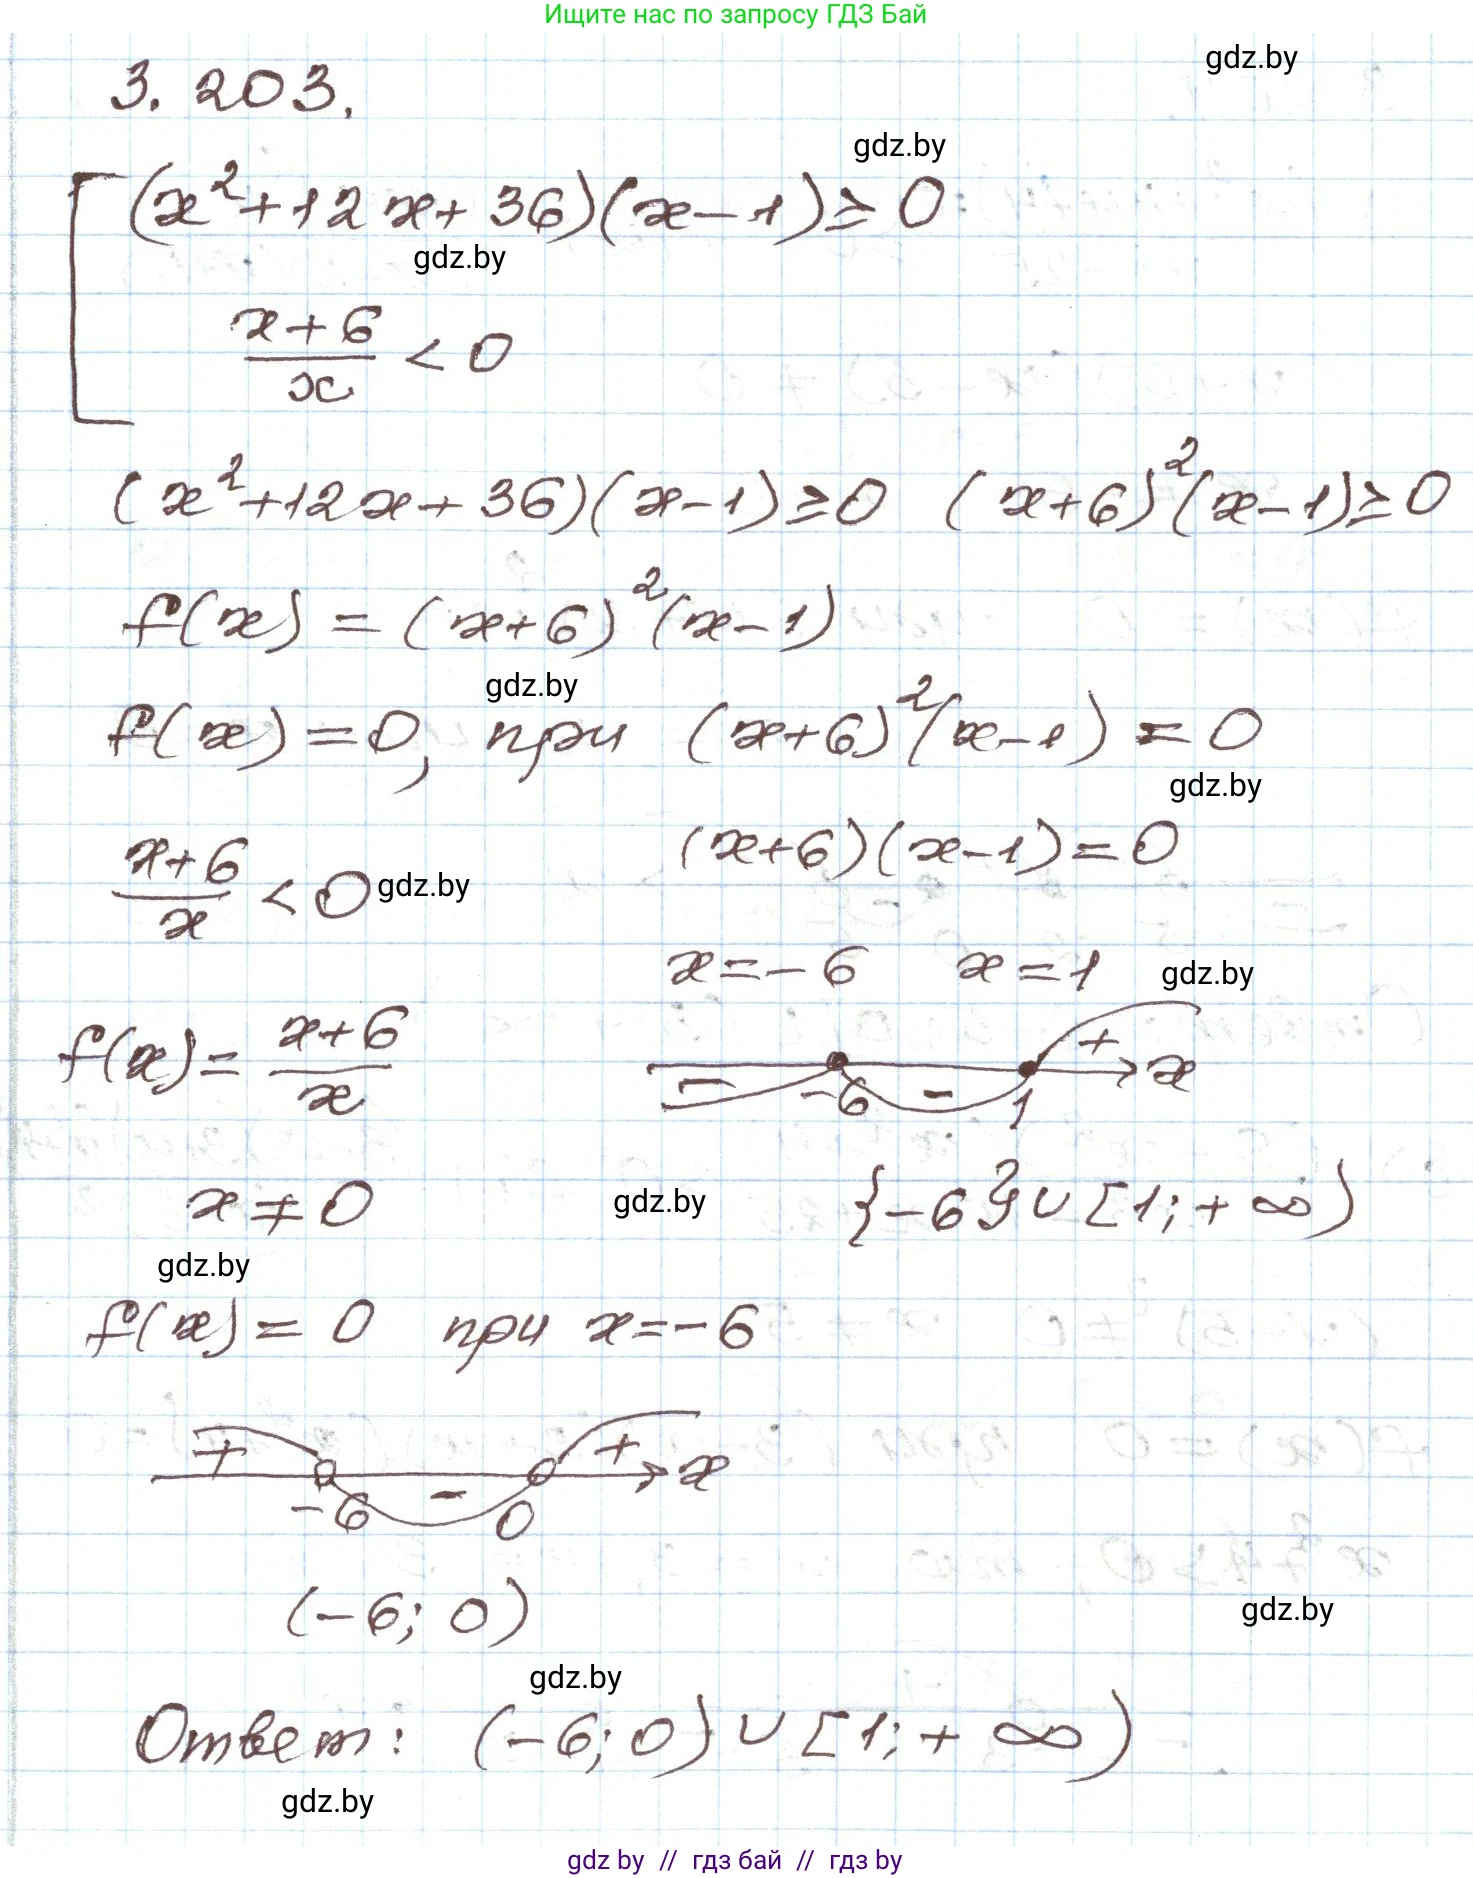 Ищите нас по запросу ГДЗ Бай
gdz.by
3.203.
gdz.by
(x²+12x+36)(x-1)≥0
gdz.by
x+6
— < 0
x
(x²+12x+36)(x-1)≥0 (x+6)²(x-1)≥0
f(x) = (x+6)²(x-1)
gdz.by
f(x)=0, при (x+6)²(x-1)=0
gdz.by
(x+6)(x-1)=0
x+6
— < 0 gdz.by
x
x=-6 x=1 gdz.by
f(x)= x+6
—
x
- -6 - 1 + x
x≠0 gdz.by {-6}∪[1;+∞)
gdz.by
f(x)=0 при x=-6
+ -6 - 0 + x
(-6; 0)
gdz.by
gdz.by
Ответ: (-6; 0)∪[1;+∞)
gdz.by
gdz by // гдз бай // гдз by